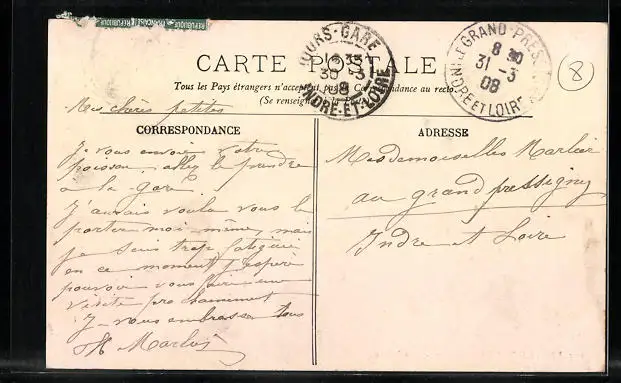 TOURS-GARE
30 -3
08
INDRE-ET-LOIRE
LE GRAND-PRES
8 30
31 -3
08
INDRE ET LOIRE
8
CARTE POSTALE
Tous les Pays étrangers n'acceptent pas la Correspondance au recto
(Se renseigner à la Poste)
Mes chères petites
CORRESPONDANCE
Je vous envoie votre
poisson, allez le prendre
a la gare
J'aurais voulu vous le
porter moi-même, mais
je suis trop fatiguée
en ce moment j'espère
pouvoir vous faire une
visite prochainement
Je vous embrasse tous
ADRESSE
Mesdemoiselles
au grand pressigny
Indre et Loire